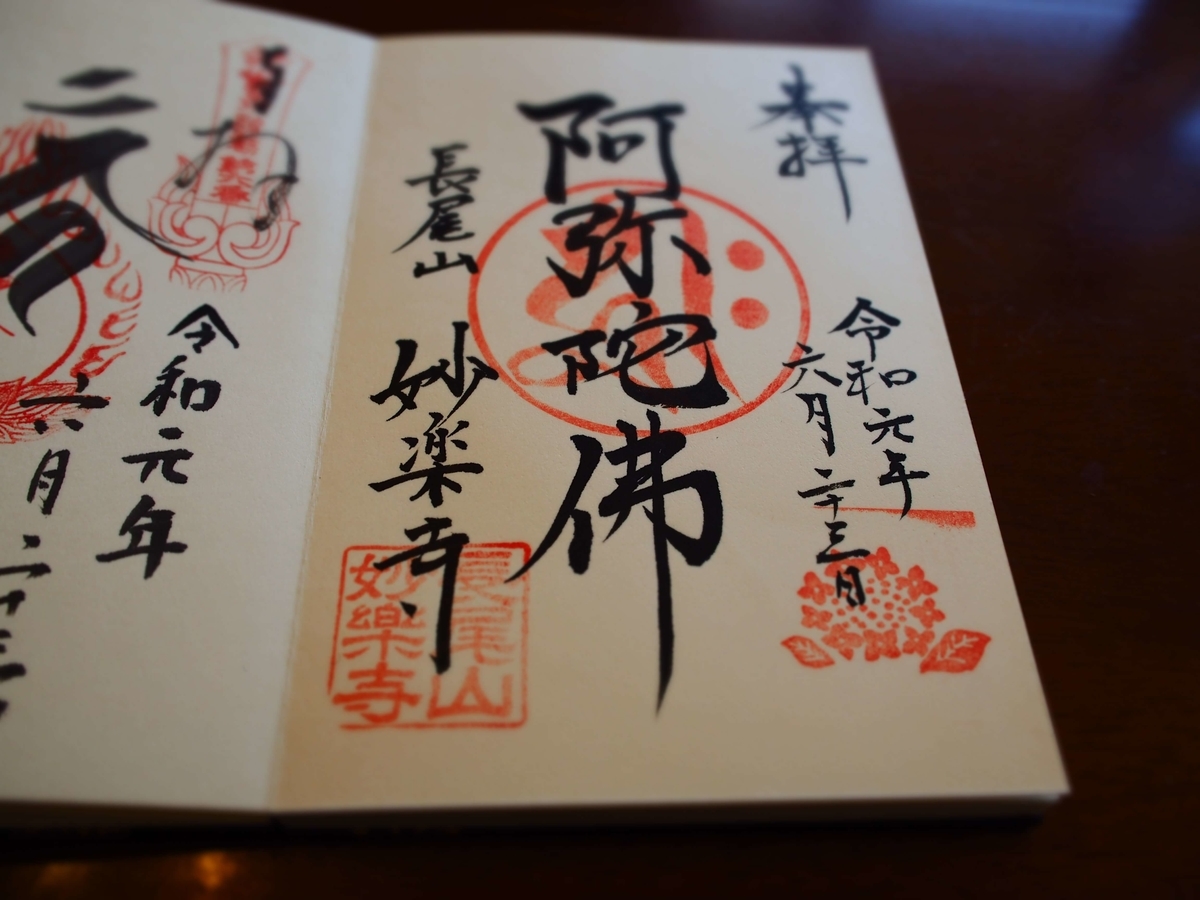 奉拝
令和元年
六月二十三日
阿弥陀佛
長尾山
妙楽寺
長尾山
妙樂寺
令和元年
六月二十三